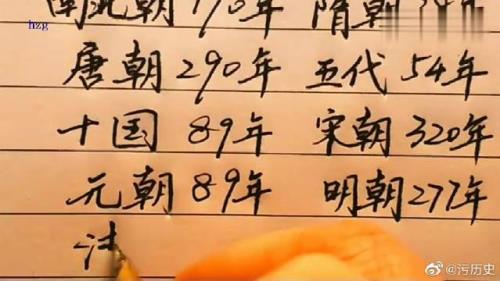 hzg
南北朝170年 隋朝
唐朝290年 五代54年
十国89年 宋朝320年
元朝89年 明朝277年
@污历史